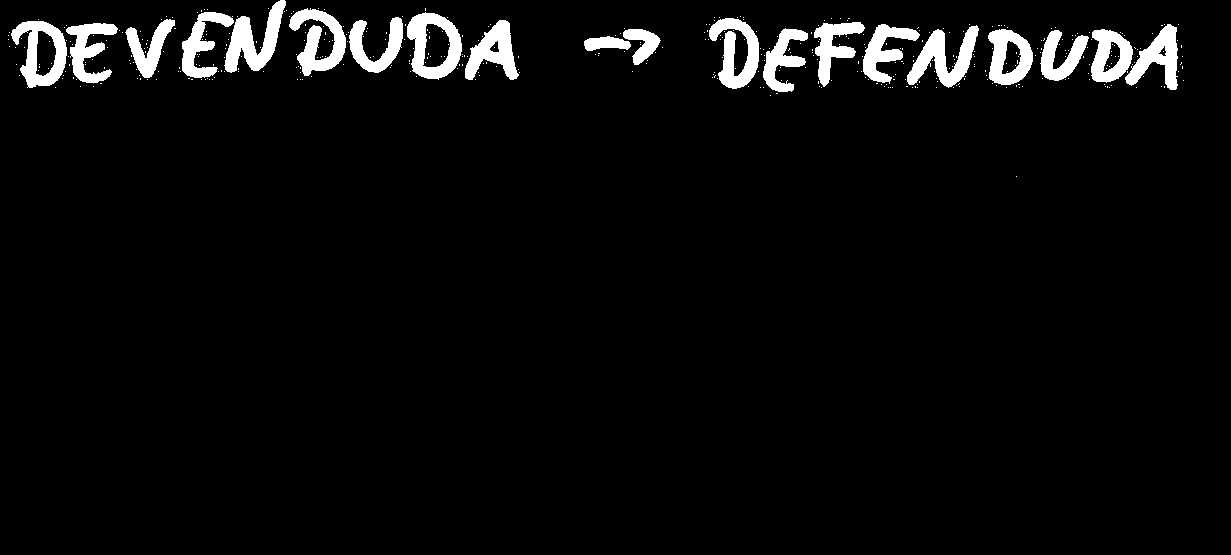 DEVENDUDA → DEFENDUDA